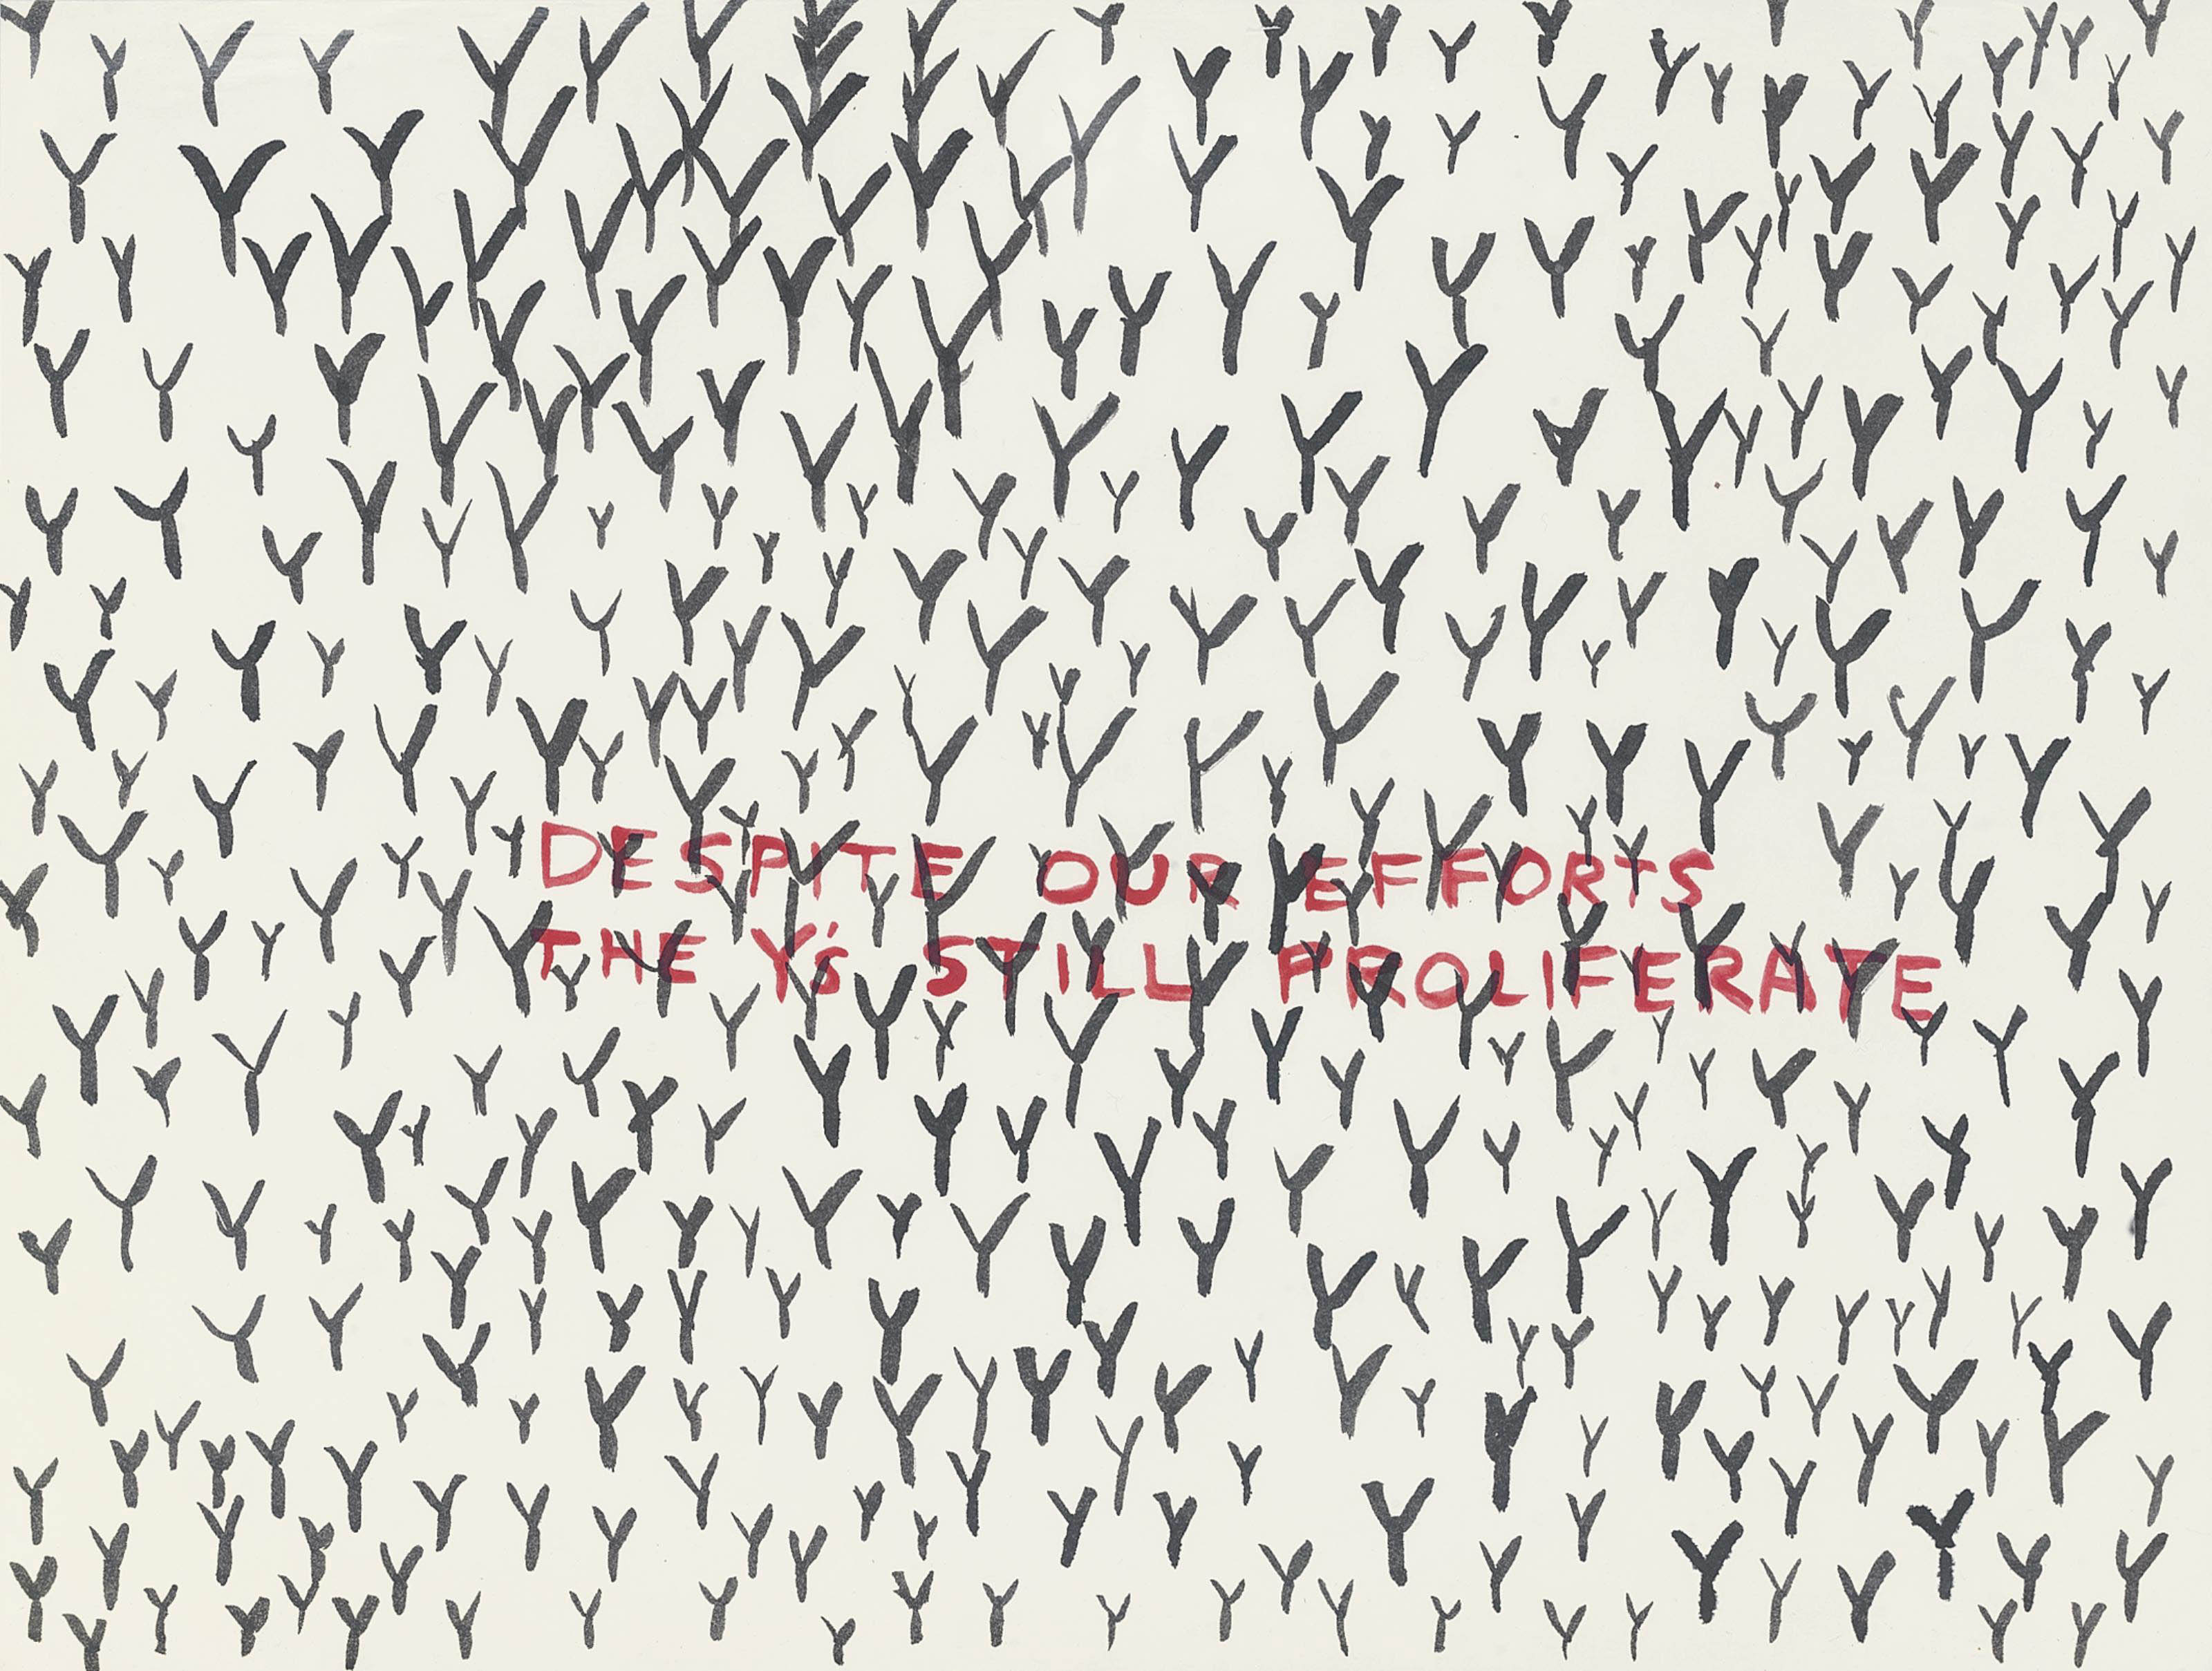 DESPITE OUR EFFORTS
THE Y's STILL PROLIFERATE